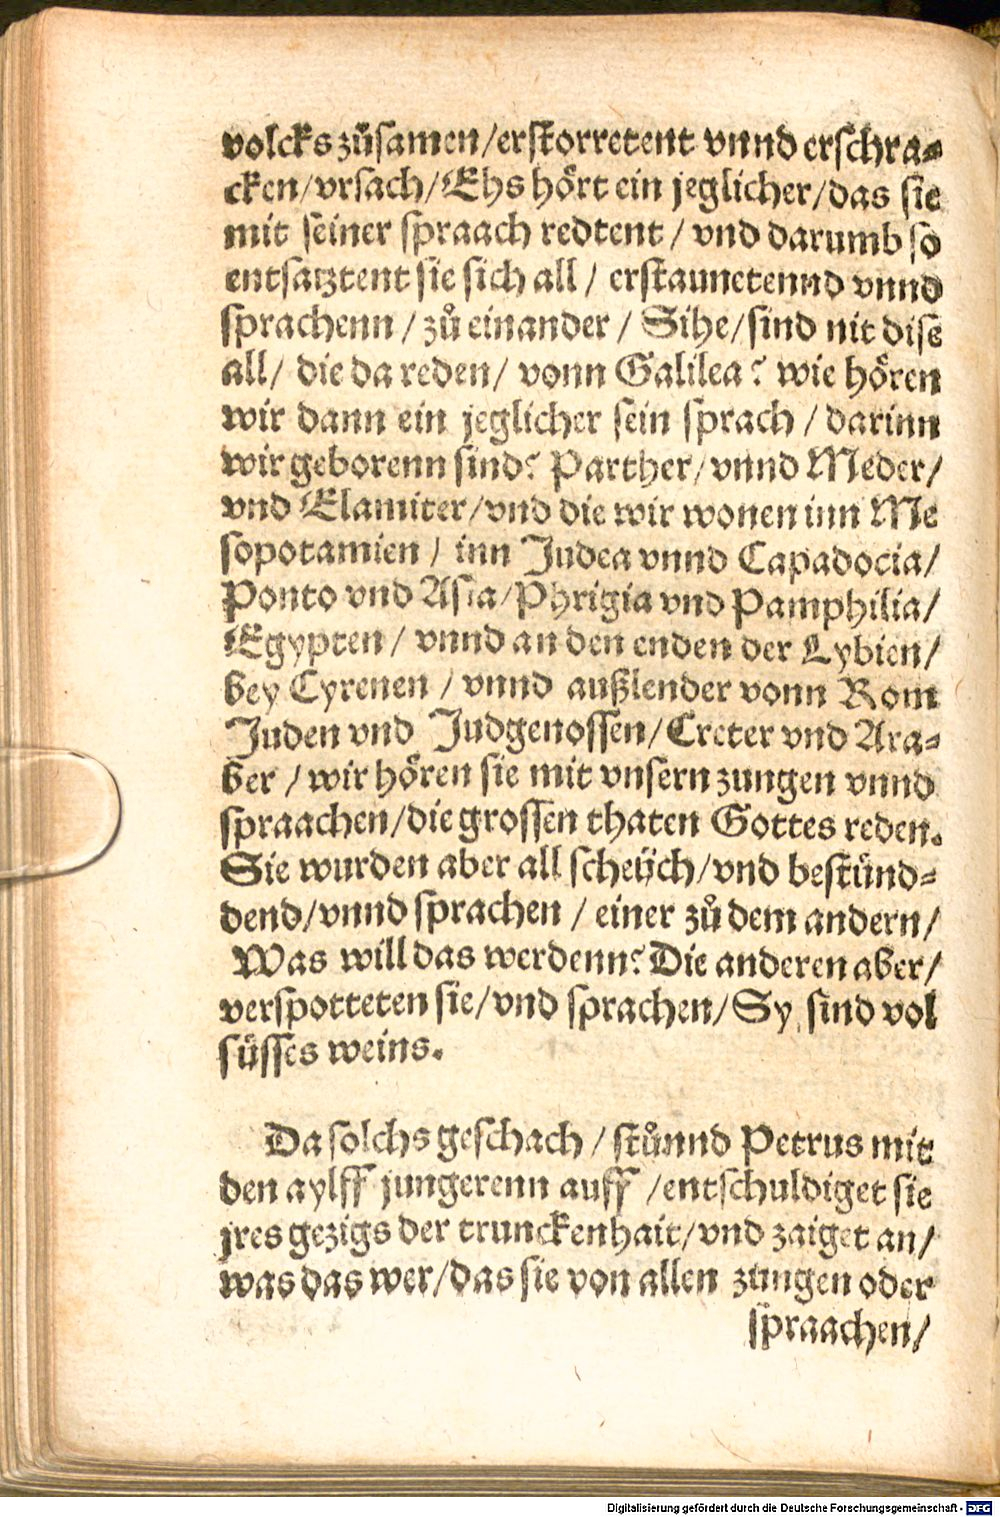 volcks zůsamen/erstorretent vnnd erschra⸗
cken/vrsach/Ehs hört ein jeglicher/das sie
mit seiner spraach redtent / vnd darumb so
entsatztent sie sich all / erstaunetennd vnnd
sprachenn / zů einander / Sihe/sind nit dise
all/ die da reden/ vonn Galilea? wie hören
wir dann ein jeglicher sein sprach / darinn
wir geborenn sind? Parther/vnnd Meder/
vnd Elamiter/vnd die wir wonen inn Me
sopotamien / inn Judea vnnd Capadocia/
Ponto vnd Asia/Phrigia vnd Pamphilia/
Egypten / vnnd an den enden der Lybien/
bey Cyrenen / vnnd außlender vonn Rom
Juden vnd Judgenossen/Creter vnd Ara⸗
ber / wir hören sie mit vnsern zungen vnnd
spraachen/die grossen thaten Gottes reden.
Sie wurden aber all scheüch/vnd bestünd⸗
dend/vnnd sprachen / einer zů dem andern/
Was will das werdenn? Die anderen aber/
verspotteten sie/vnd sprachen/Sy sind vol
süsses weins.
Da solchs geschach / stůnnd Petrus mit
den aylff jungerenn auff /entschuldiget sie
jres gezigs der trunckenhait/vnd zaiget an/
was das wer/das sie von allen zungen oder
spraachen/
Digitalisierung gefördert durch die Deutsche Forschungsgemeinschaft - DFG